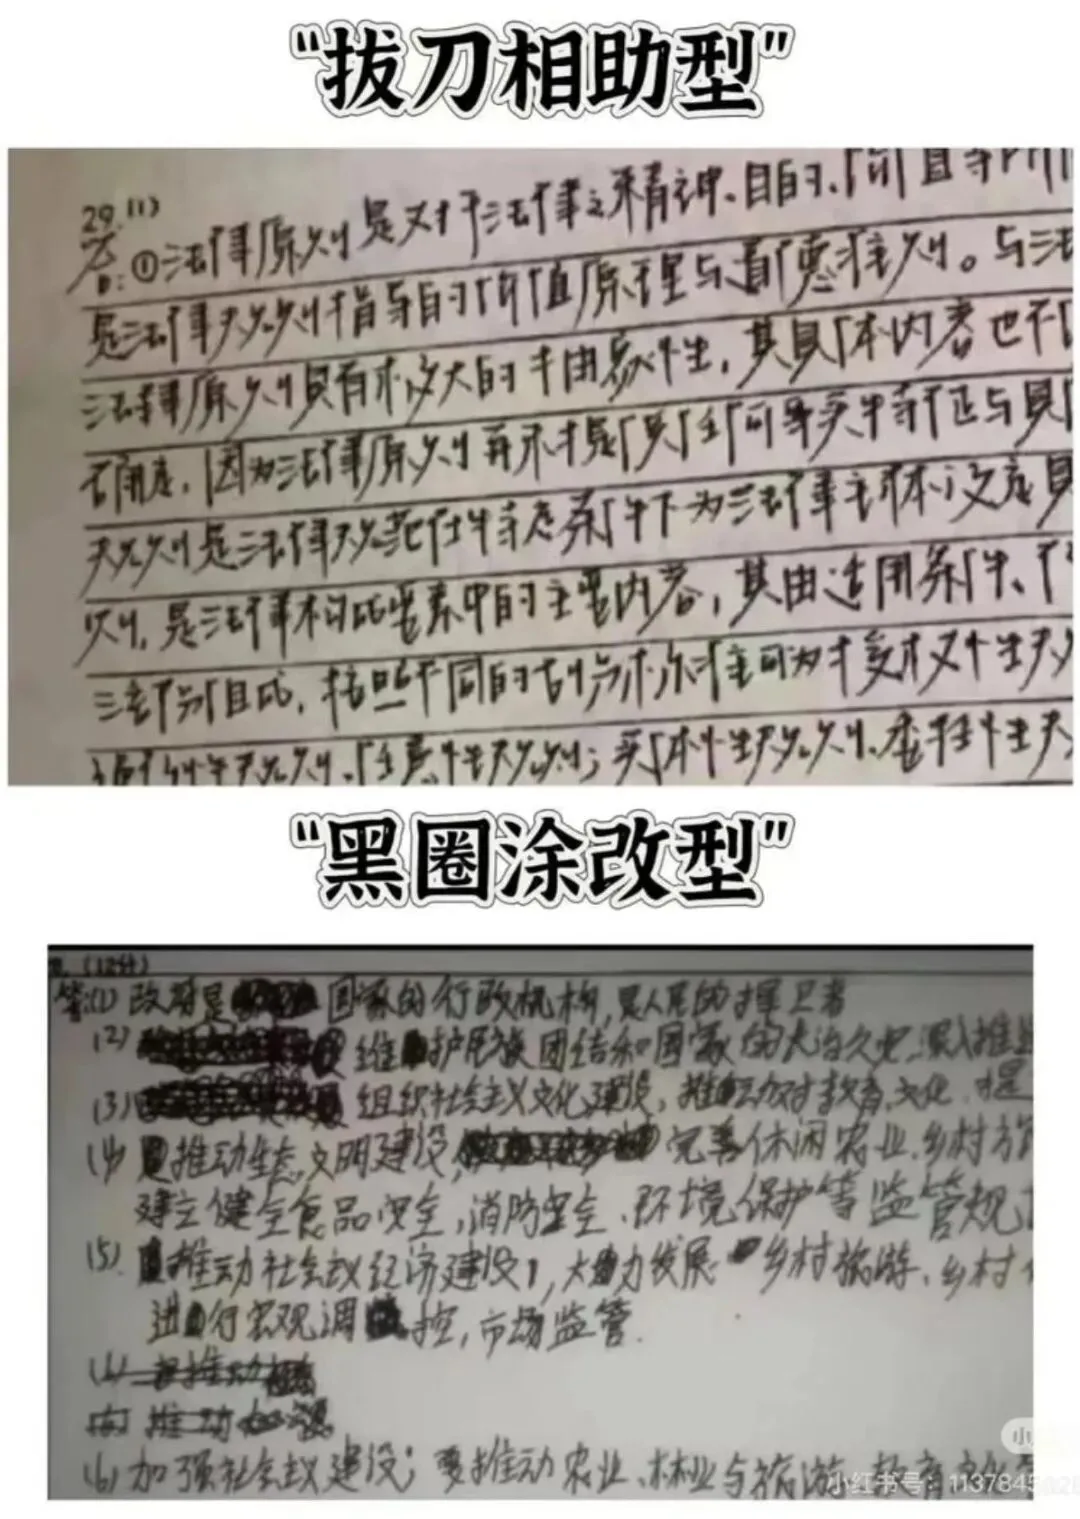 “拔刀相助型”
29.(1)
答:①法律原则是对于法律之精神、目的、价值等
是法律规则指导的价值原理与道德准则。与法
法律原则具有较大的抽象性，其具体内容也不
确定，因为法律原则再不是
规则是法律规范在特定条件下为法律主体设定具
则，是法律构成要素中的主要内容，其由适用条件、
三部分组成，按照不同的划分标准可为授权性规
规则、任意性规则；实体性规则、委任性
“黑圈涂改型”
(12分)
答:(1) 政府是国家的行政机构，是人民的捍卫者
(2) 维护民族团结和国家的长治久安、深入推
(3) 组织社会主义文化建设，推动对教育、文化、
(4) 推动生态文明建设，完善休闲农业、乡村旅
建立健全食品安全，消防安全、环境保护等监管规
(5) 推动社会主义经济建设，大力发展乡村旅游、乡村
进行宏观调控，市场监管.
推动
推动
(6) 加强社会主义建设；要推动农业、林业与旅游、教育、文化
小红书号：1137845828